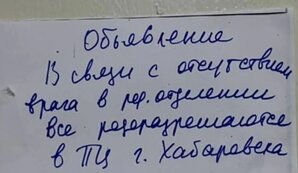 Объявление
В связи с отсутствием
врача в род. отделении
все
в ПЦ г. Хабаровска